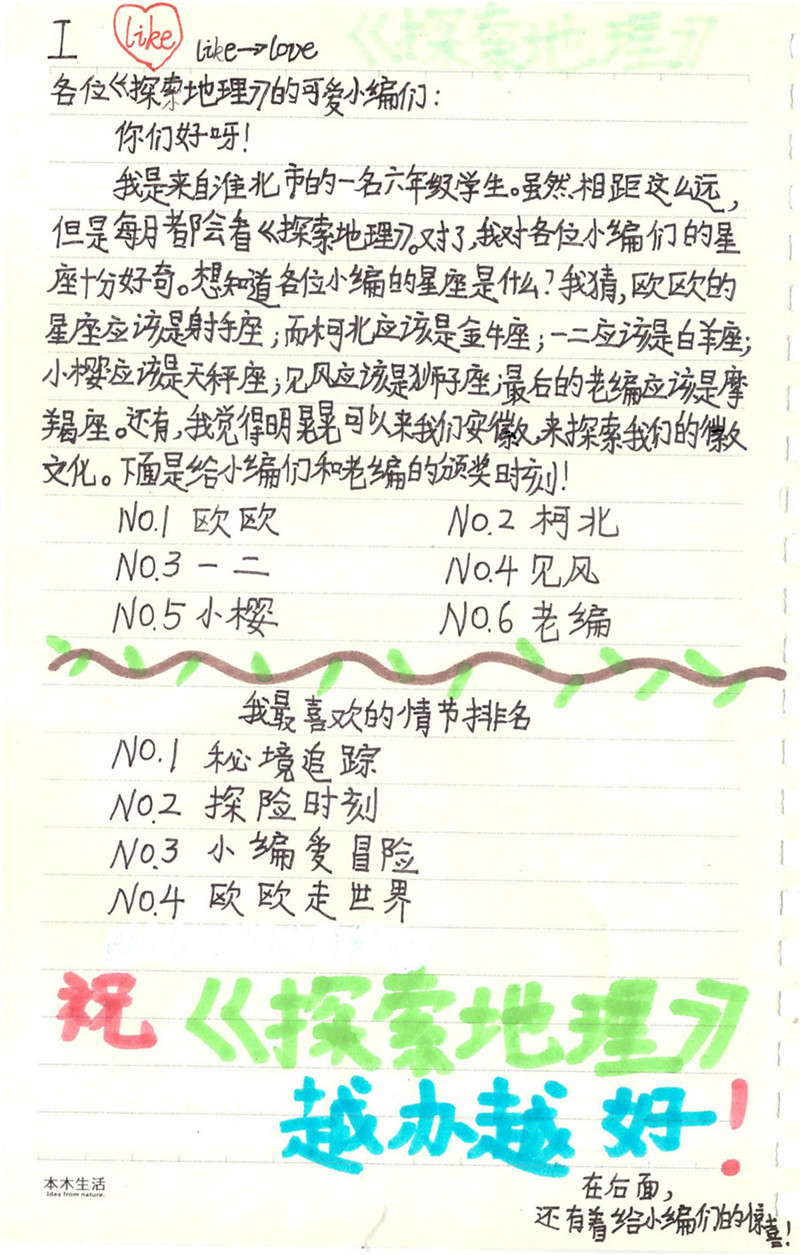 I like like→love
各位《探索地理》的可爱小编们：
你们好呀！
我是来自淮北市的一名六年级学生。虽然相距这么远，
但是每月都会看《探索地理》。对了，我对各位小编们的星
座十分好奇。想知道各位小编的星座是什么？我猜，欧欧的
星座应该是射手座；而柯北应该是金牛座；一二应该是白羊座；
小樱应该是天秤座；见风应该是狮子座；最后的老编应该是摩
羯座。还有，我觉得明晃晃可以来我们安徽，来探索我们的徽
文化。下面是给小编们和老编的颁奖时刻！
NO.1 欧欧 NO.2 柯北
NO.3 一二 NO.4 见风
NO.5 小樱 NO.6 老编
我最喜欢的情节排名
NO.1 秘境追踪
NO.2 探险时刻
NO.3 小编爱冒险
NO.4 欧欧走世界
祝《探索地理》
越办越好！
本木生活
Idea from nature.
在后面，
还有着给小编们的惊喜！